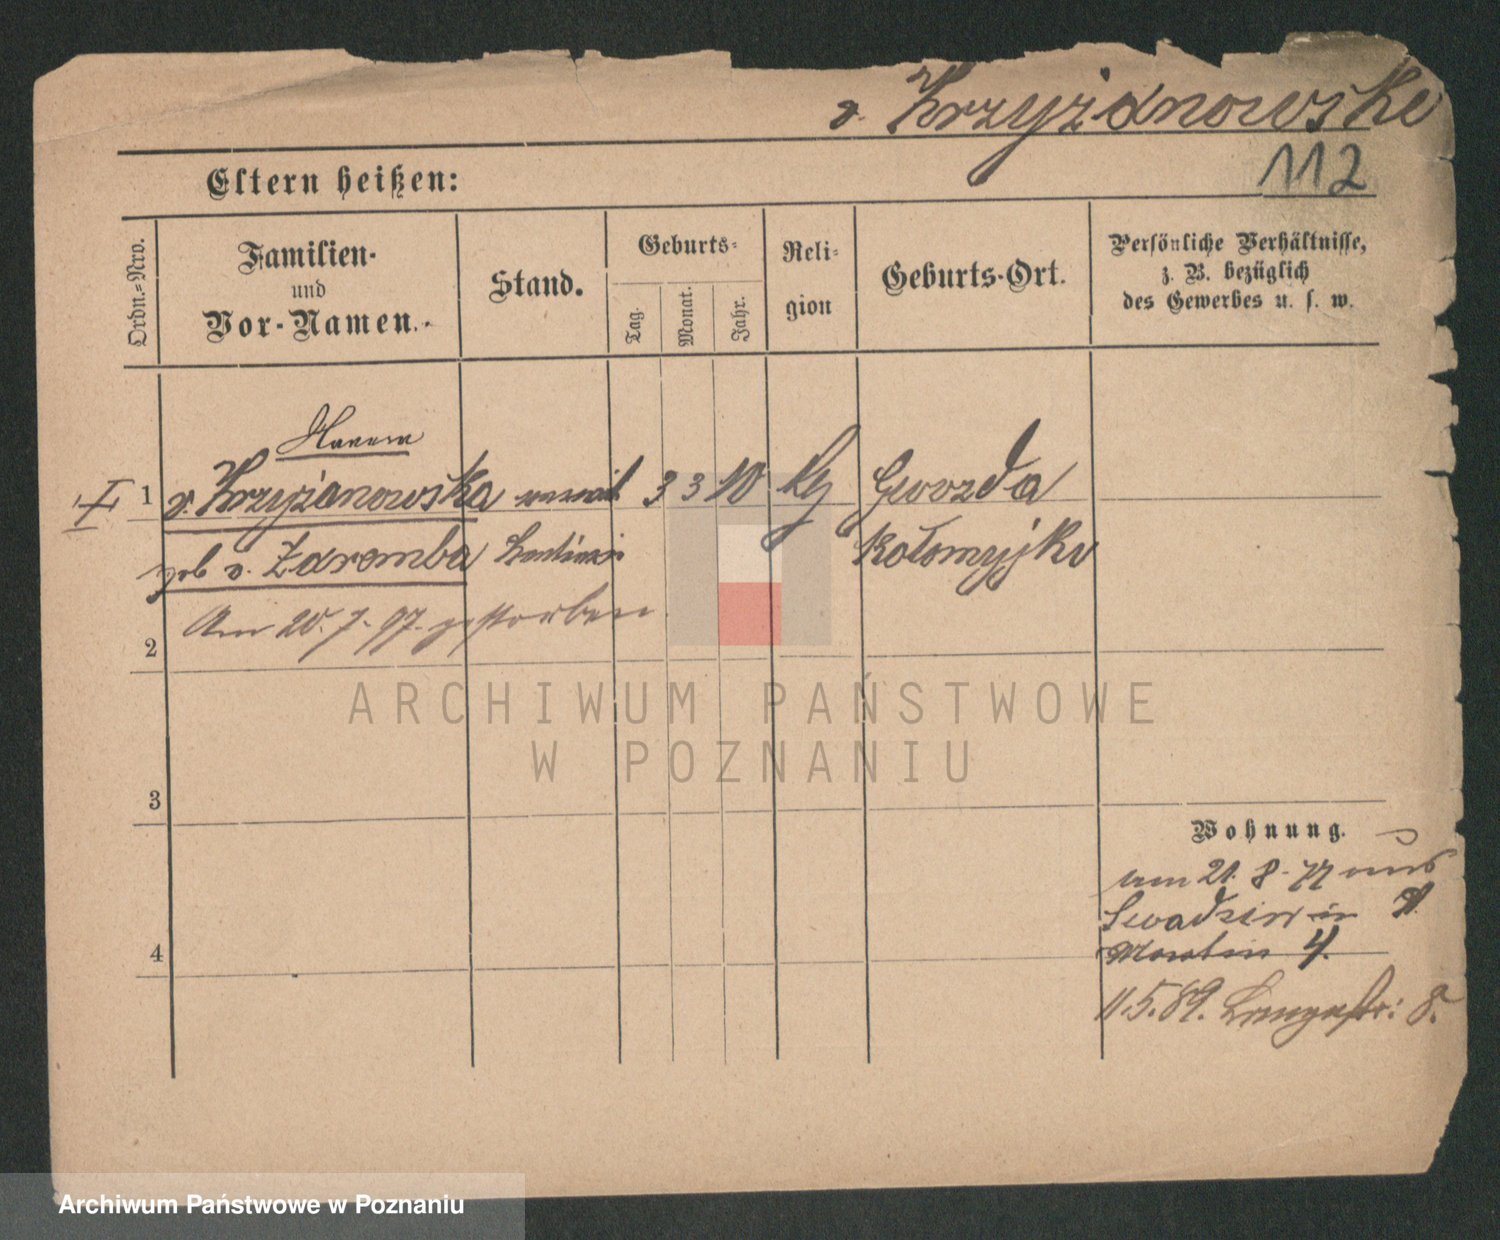 v. Krzyżanowska
112
Eltern heißen:
Ordn.-Nro.
Familien-
und
Vor-Namen.
Stand.
Geburts-
Tag.
Monat.
Jahr.
Reli-
gion
Geburts-Ort.
Persönliche Verhältnisse,
z. B. bezüglich
des Gewerbes u. s. w.
1
v. Krzyżanowska
3 3 10
Gwozda
geb v. Zaremba
Kołomyjki
Am 20. 7. 97. gestorben
2
3
4
Wohnung.
am 21. 8. 77 aus
in
Martin 4.
11.5.89. Langestr: 8.
ARCHIWUM PAŃSTWOWE
W POZNANIU
Archiwum Państwowe w Poznaniu